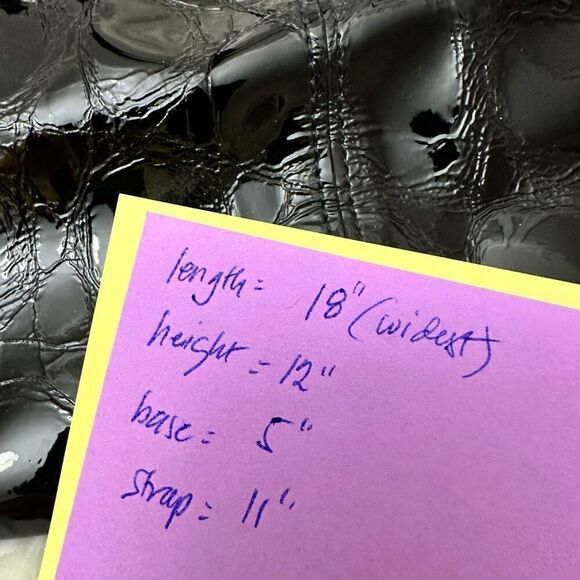 length= 18" (widest)
height = 12"
base= 5"
strap= 11"